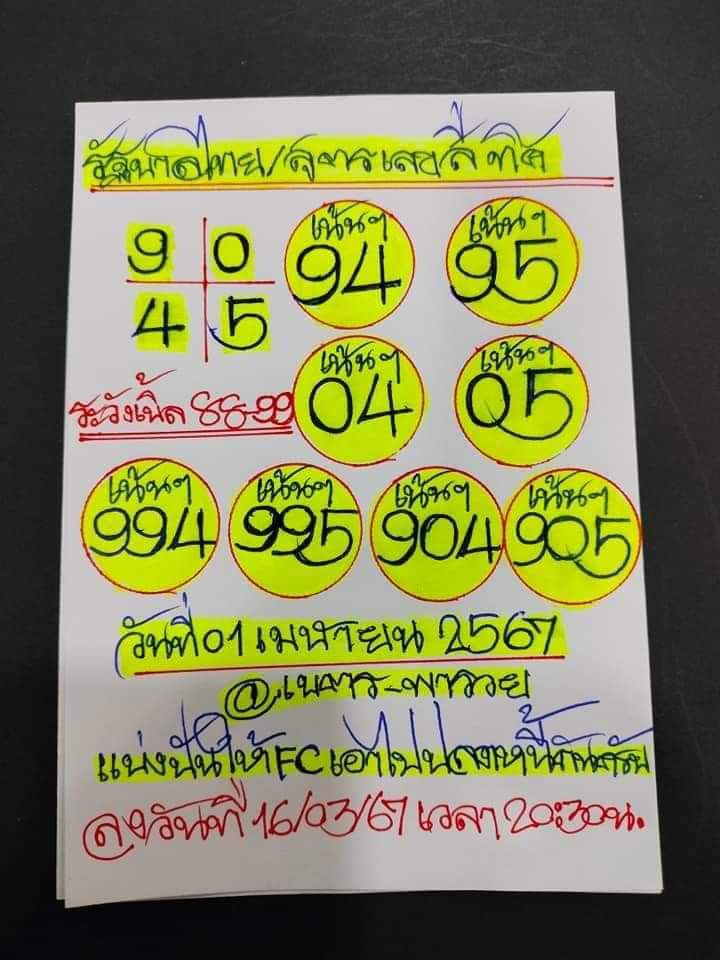 รัฐบาลไทย/สูตรเลขสี่ทิศ
9 0
4 5
เน้นๆ
94
เน้นๆ
95
เน้นๆ
04
เน้นๆ
05
ระวังเบิ้ล 88-99
เน้นๆ
994
เน้นๆ
995
เน้นๆ
904
เน้นๆ
905
วันที่ 01 เมษายน 2567
@เนตร-พารวย
แบ่งปันให้ FC เอาไปปลดหนี้กันครับ
ลงวันที่ 16/03/67 เวลา 20:30 น.